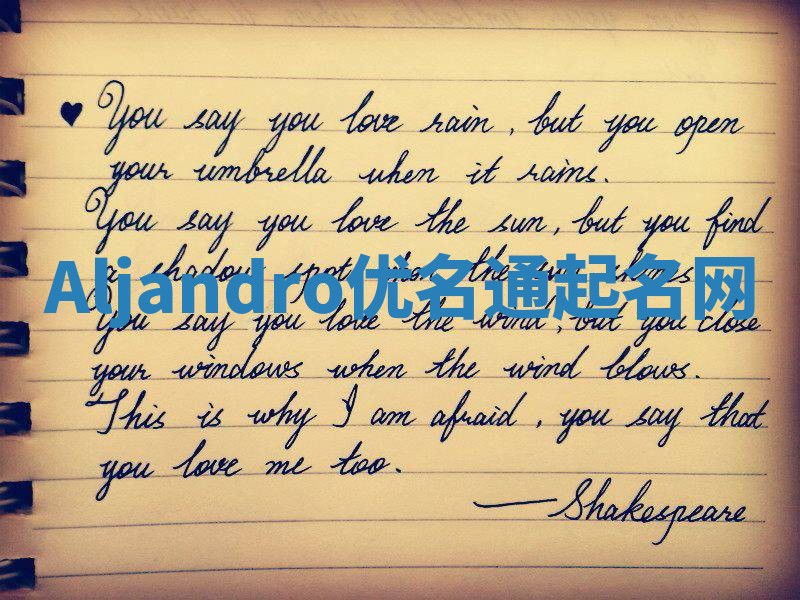 ♥ You say you love rain, but you open
your umbrella when it rains.
You say you love the sun, but you find
a shadow spot when the sun shines
Aljandro优名通起名网
You say you love the wind, but you close
your windows when the wind blows.
This is why I am afraid, you say that
you love me too.
—Shakespeare